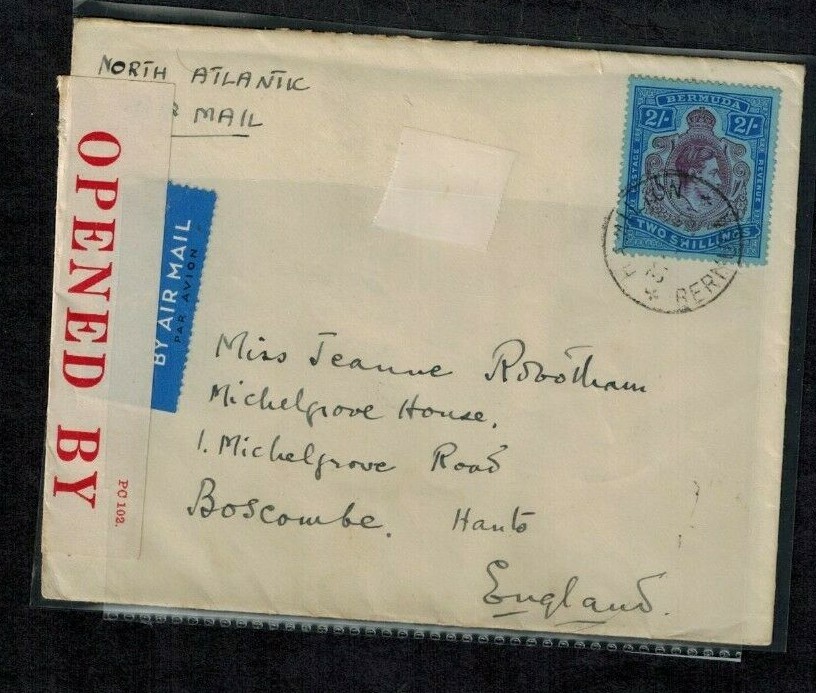 NORTH ATLANTIC
MAIL
OPENED BY
PC 102.
BY AIR MAIL
PAR AVION
BERMUDA
2/- 2/-
POSTAGE
REVENUE
TWO SHILLINGS
Miss Jeanne Robotham
Michelgrove House,
1. Michelgrove Road
Boscombe. Hants
England.